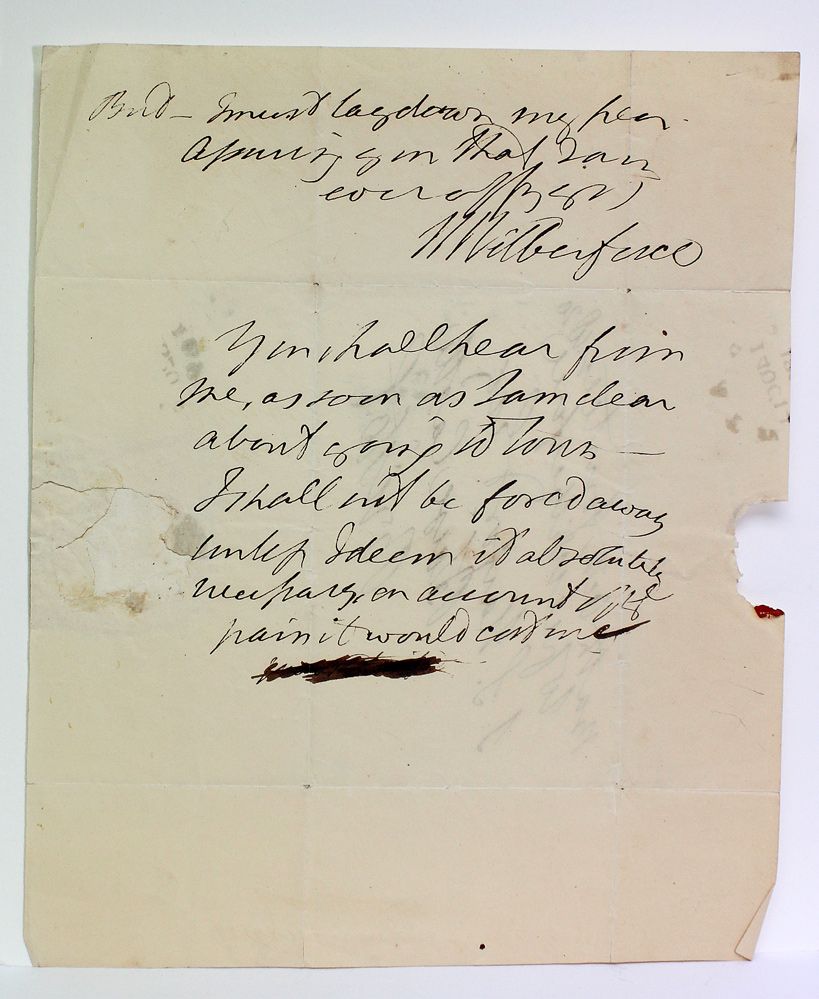 But – I must lay down my pen
assuring you that I am
ever affly yrs
W Wilberforce
You shall hear from
me, as soon as I am clear
about going to Town —
I shall not be forced away
unless I deem it absolutely
necessary, on account of the
pain it would cost me